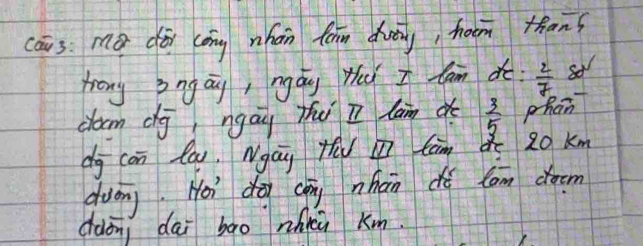 Câu 3: Một đội công nhân làm đường, hoàn thành
trong 3 ngày, ngày thứ I làm đc: 2/7 số
đoạn đg, ngày thứ II làm đc 3/5 phần
đg còn lại. Ngày thứ III làm đc 20 Km
đường. Hỏi đội công nhân đã làm đoạn
đường dài bao nhiêu Km.